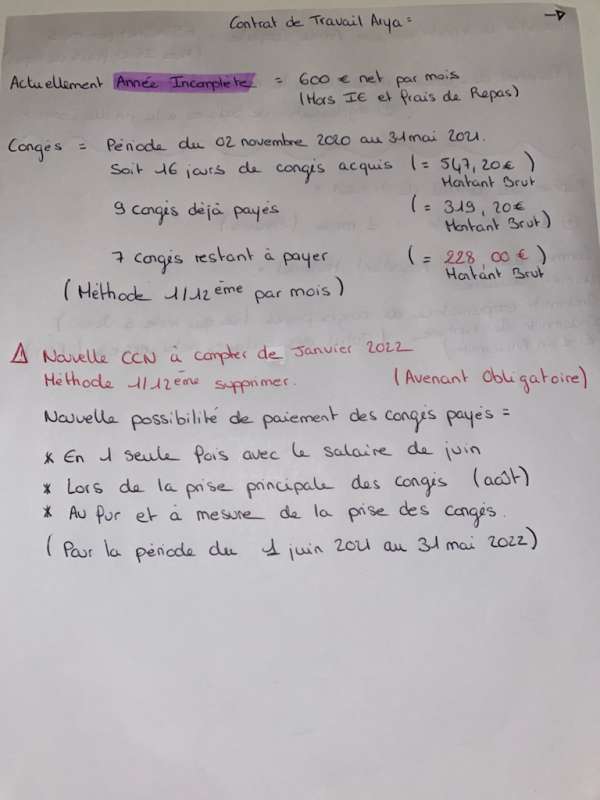 Contrat de Travail Arya =
Actuellement Année Incomplète = 600 € net par mois
(Hors IE et frais de Repas)
Congés = Période du 02 novembre 2020 au 31 mai 2021.
Soit 16 jours de congés acquis (= 547,20 € )
Montant Brut
9 congés déjà payés (= 319,20 €
Montant Brut)
7 congés restant à payer (= 228,00 € )
Montant Brut
(Méthode 1/12ème par mois)
⚠ Nouvelle CCN à compter de Janvier 2022
Méthode 1/12ème supprimer. (Avenant Obligatoire)
Nouvelle possibilité de paiement des congés payés =
* En 1 seule fois avec le salaire de juin
* Lors de la prise principale des congés (août)
* Au fur et à mesure de la prise des congés.
(Pour la période du 1 juin 2021 au 31 mai 2022)